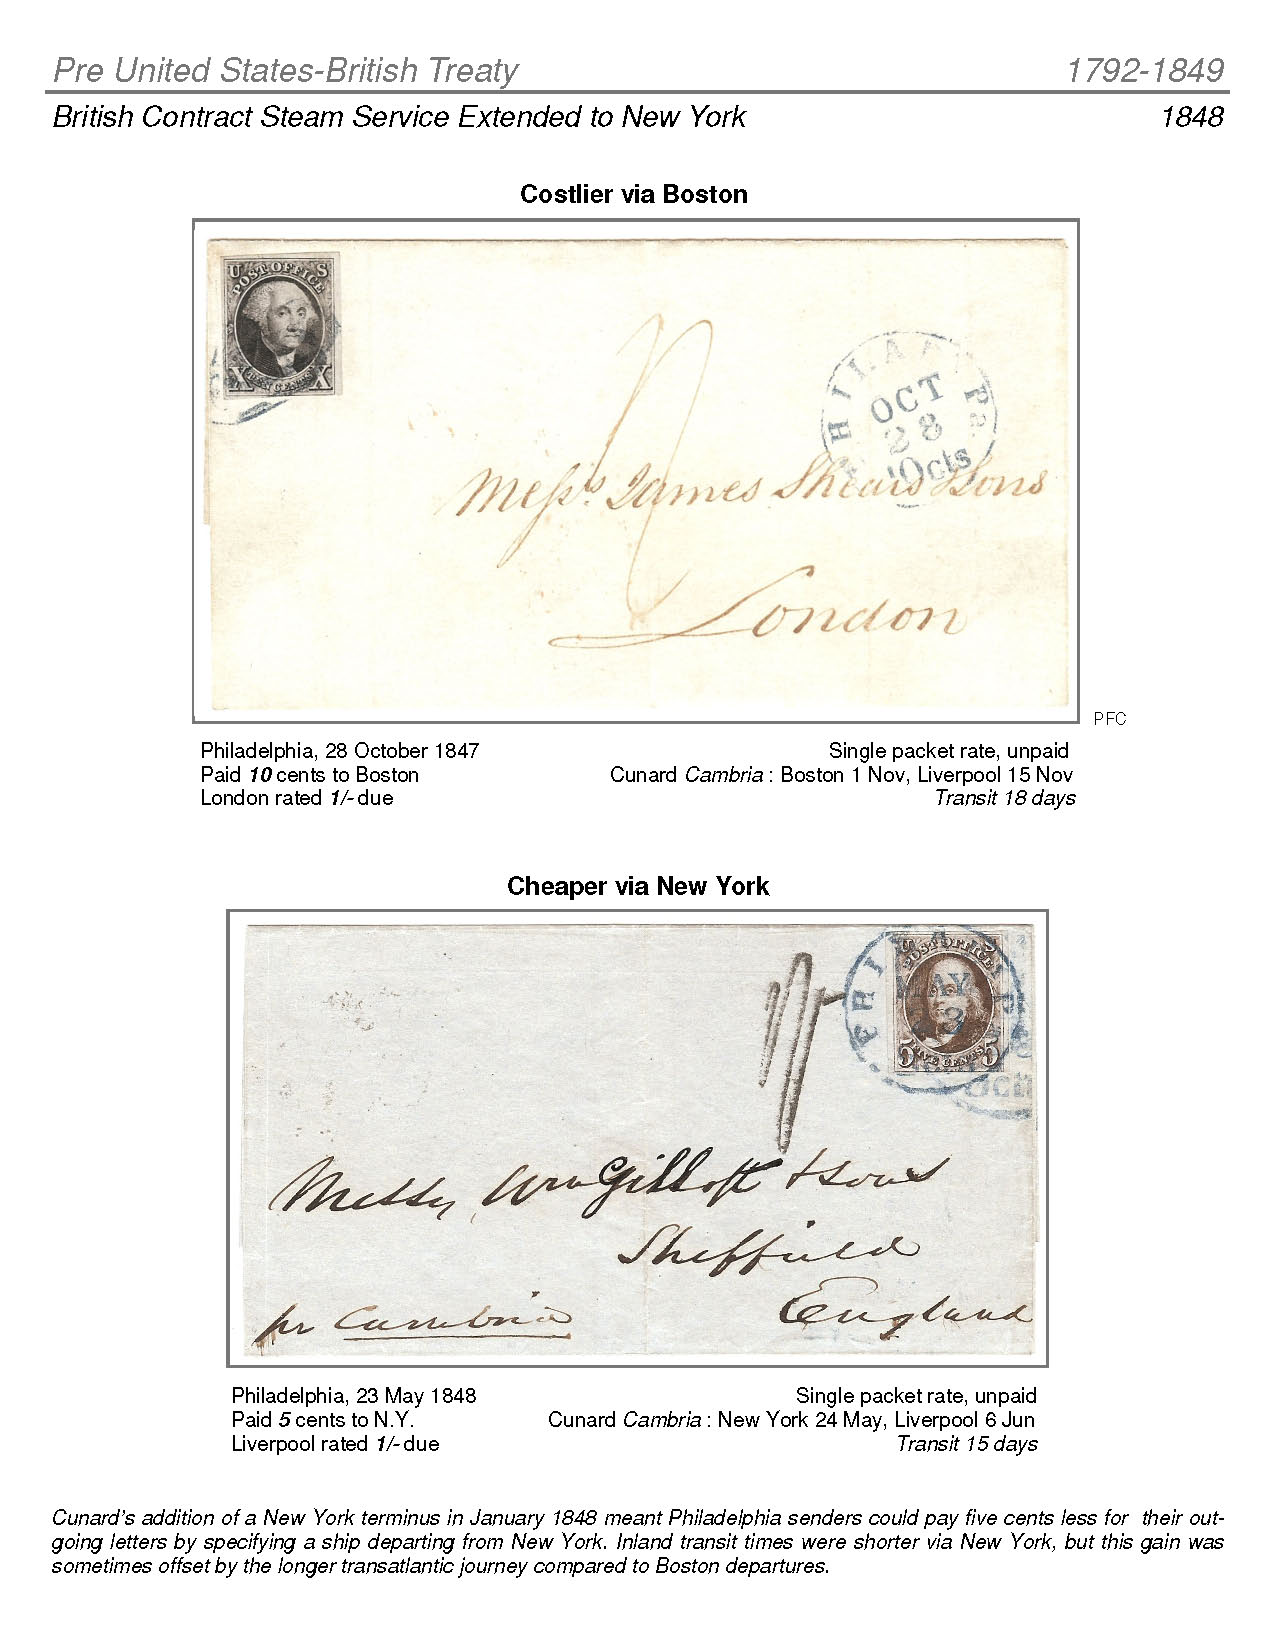 Pre United States-British Treaty 1792-1849
British Contract Steam Service Extended to New York 1848
Costlier via Boston
U POST OFFICE S
X TEN CENTS X
PHILADA Pa.
OCT
28
10cts
Messrs. James Shears & Sons
London
PFC
Philadelphia, 28 October 1847 Single packet rate, unpaid
Paid 10 cents to Boston Cunard Cambria : Boston 1 Nov, Liverpool 15 Nov
London rated 1/- due Transit 18 days
Cheaper via New York
POST OFFICE
5 FIVE CENTS 5
MAY
Messrs Wm Gillott & Sons
Sheffield
England
pr Cambria
Philadelphia, 23 May 1848 Single packet rate, unpaid
Paid 5 cents to N.Y. Cunard Cambria : New York 24 May, Liverpool 6 Jun
Liverpool rated 1/- due Transit 15 days
Cunard's addition of a New York terminus in January 1848 meant Philadelphia senders could pay five cents less for their out-
going letters by specifying a ship departing from New York. Inland transit times were shorter via New York, but this gain was
sometimes offset by the longer transatlantic journey compared to Boston departures.